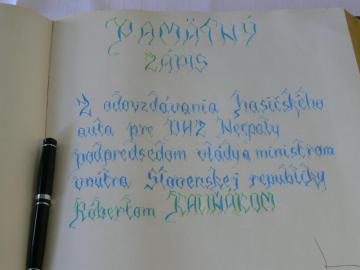 PAMÄTNÝ
ZÁPIS
Z odovzdávania hasičského
auta pre DHZ Necpaly
podpredsedom vlády a ministrom
vnútra Slovenskej republiky
Róbertom KALIŇÁKOM